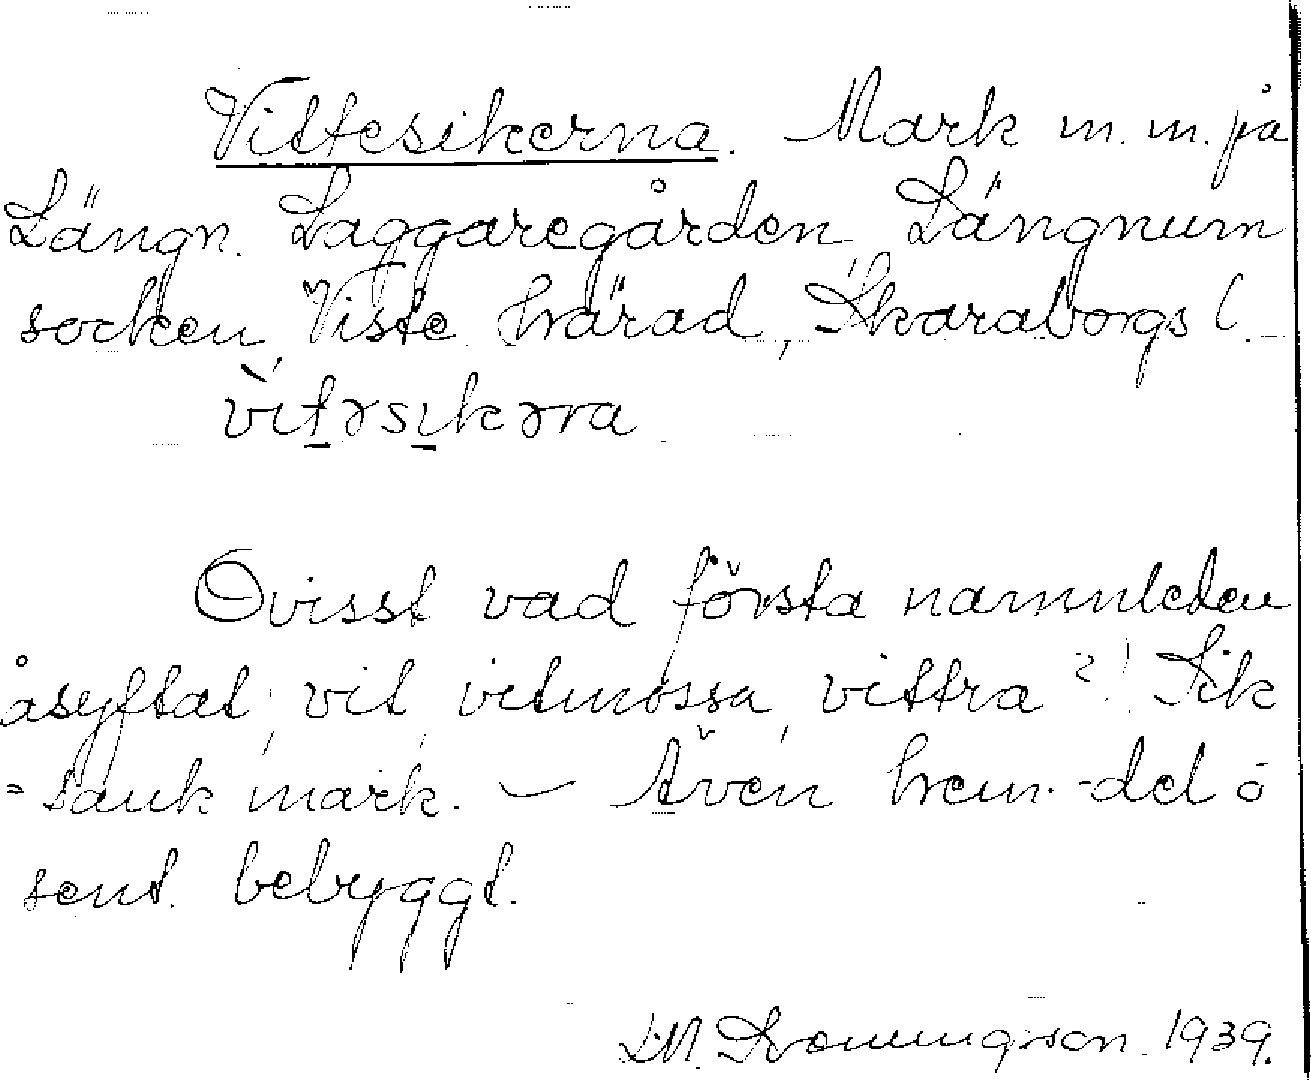 Vittesikerna. Mark m.m. på
Längn. Laggaregården, Längnum
socken, Viste härad, Skaraborgs l.
vitəsikəra
Ovisst vad första namnleden
åsyftat; vit, vitmossa, vittra?! Sik
= sank mark. – Även hem.-del ö
sent. bebyggt.
1939.